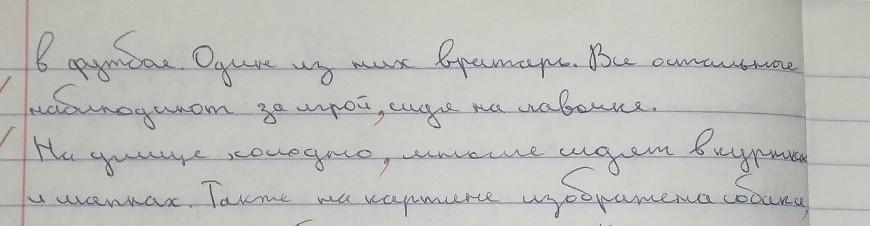 в футбол. Один из них вратарь. Все остальные
наблюдают за игрой, сидя на лавочке.
На улице холодно, многие сидят в куртках
и шапках. Также на картине изображена собака,